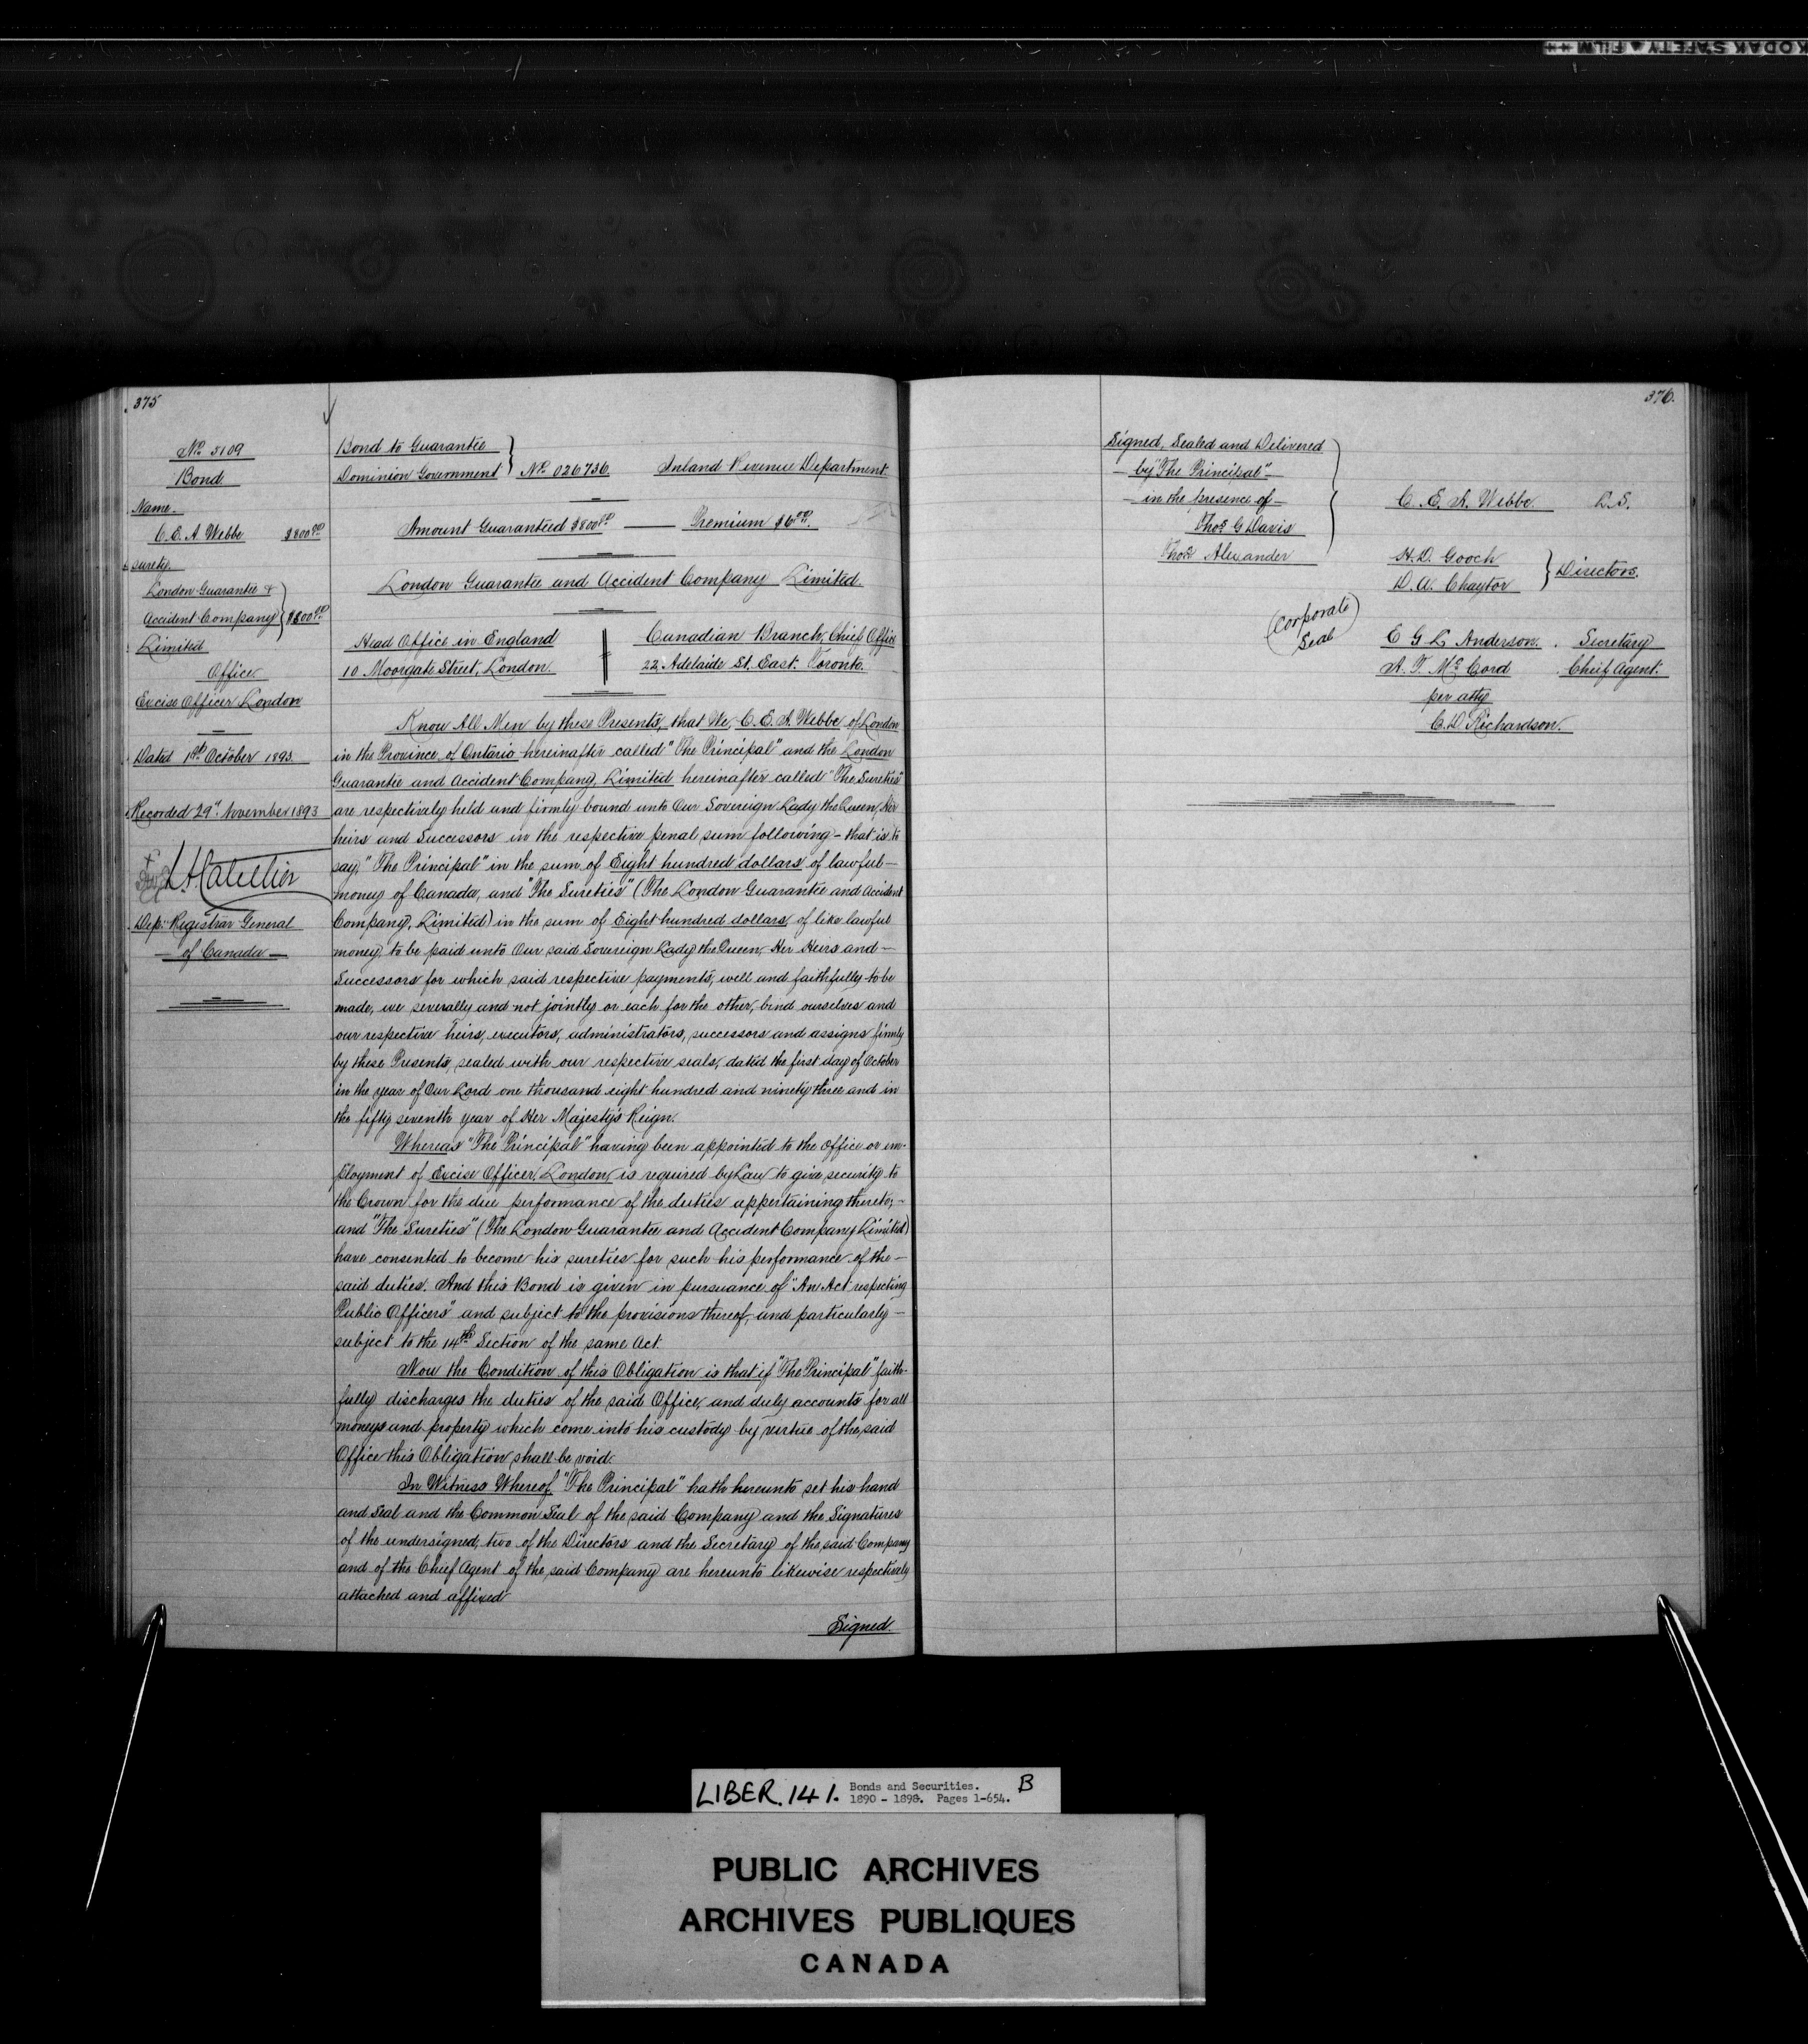 KODAK SAFETY ▲ FILM ++
375
No. 5109
Bond
Name.
C. E. A. Webbe $800.00
surety.
London Guarantee &
Accident Company } $800.00
Limited
Office
Excise Officer London
Dated 1st October 1893.
Recorded 29th November 1893
Dep. Registrar General
of Canada
Bond to Guarantee
Dominion Government } No. 026736. Inland Revenue Department.
Amount Guaranteed $800.00 — Premium $6.00.
London Guarantee and Accident Company Limited.
Head Office in England
10 Moorgate Street, London.
Canadian Branch, Chief Office
22 Adelaide St. East. Toronto.
Know All Men by these Presents, that We, C. E. A. Webbe, of London
in the Province of Ontario hereinafter called "The Principal" and the London
Guarantee and Accident Company, Limited hereinafter called "The Sureties"
are respectively held and firmly bound unto Our Sovereign Lady the Queen, Her
heirs and Successors in the respective penal sum following – that is to
say, "The Principal" in the sum of Eight hundred dollars of lawful –
money of Canada, and "The Sureties" (The London Guarantee and Accident
Company, Limited) in the sum of Eight hundred dollars, of like lawful
money, to be paid unto Our said Sovereign Lady the Queen, Her Heirs and –
Successors for which said respective payments, well and faithfully to be
made, we severally and not jointly or each for the other, bind ourselves and
our respective heirs, executors, administrators, successors and assigns firmly
by these Presents, sealed with our respective seals, dated the first day of October
in the year of Our Lord one thousand eight hundred and ninety three and in
the fifty seventh year of Her Majesty's Reign.
Whereas "The Principal" having been appointed to the office or em-
ployment of Excise Officer, London, is required by Law to give security to
the Crown for the due performance of the duties appertaining thereto, –
and "The Sureties" (The London Guarantee and Accident Company Limited)
have consented to become his sureties for such his performance of the –
said duties. And this Bond is given in pursuance of "An Act respecting
Public Officers" and subject to the provisions thereof, and particularly –
subject to the 14th Section of the same Act.
Now the Condition of this Obligation is that if "The Principal" faith-
fully discharges the duties of the said Office, and duly accounts for all
moneys and property which come into his custody by virtue of the said
Office this Obligation shall be void.
In Witness Whereof, "The Principal" hath hereunto set his hand
and Seal and the Common Seal of the said Company and the Signatures
of the undersigned, two of the Directors and the Secretary of the said Company
and of the Chief Agent of the said Company are hereunto likewise respectively
attached and affixed
Signed.
376.
Signed, Sealed and Delivered
by "The Principal"
in the presence of
Thos. G Davis
Thos. Alexander
C. E. A. Webbe L.S.
H. D. Gooch
D. A. Chaytor } Directors.
(Corporate Seal)
E G L Anderson. Secretary
A. T. McCord Chief Agent.
per atty
C. D Richardson.
LIBER. 141. Bonds and Securities. B
1890 - 1898. Pages 1-654.
PUBLIC ARCHIVES
ARCHIVES PUBLIQUES
CANADA